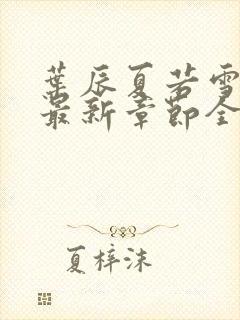 葉辰夏若雪
最新章節全
夏梓沫